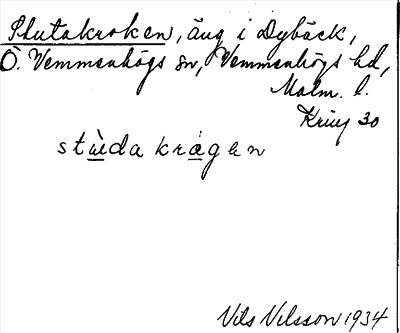 Stutakroken, äng i Dybäck,
Ö. Vemmenhögs sn, Vemmenhögs hd,
Malm. l.
30
stùda krágen
Nils Nilsson 1934